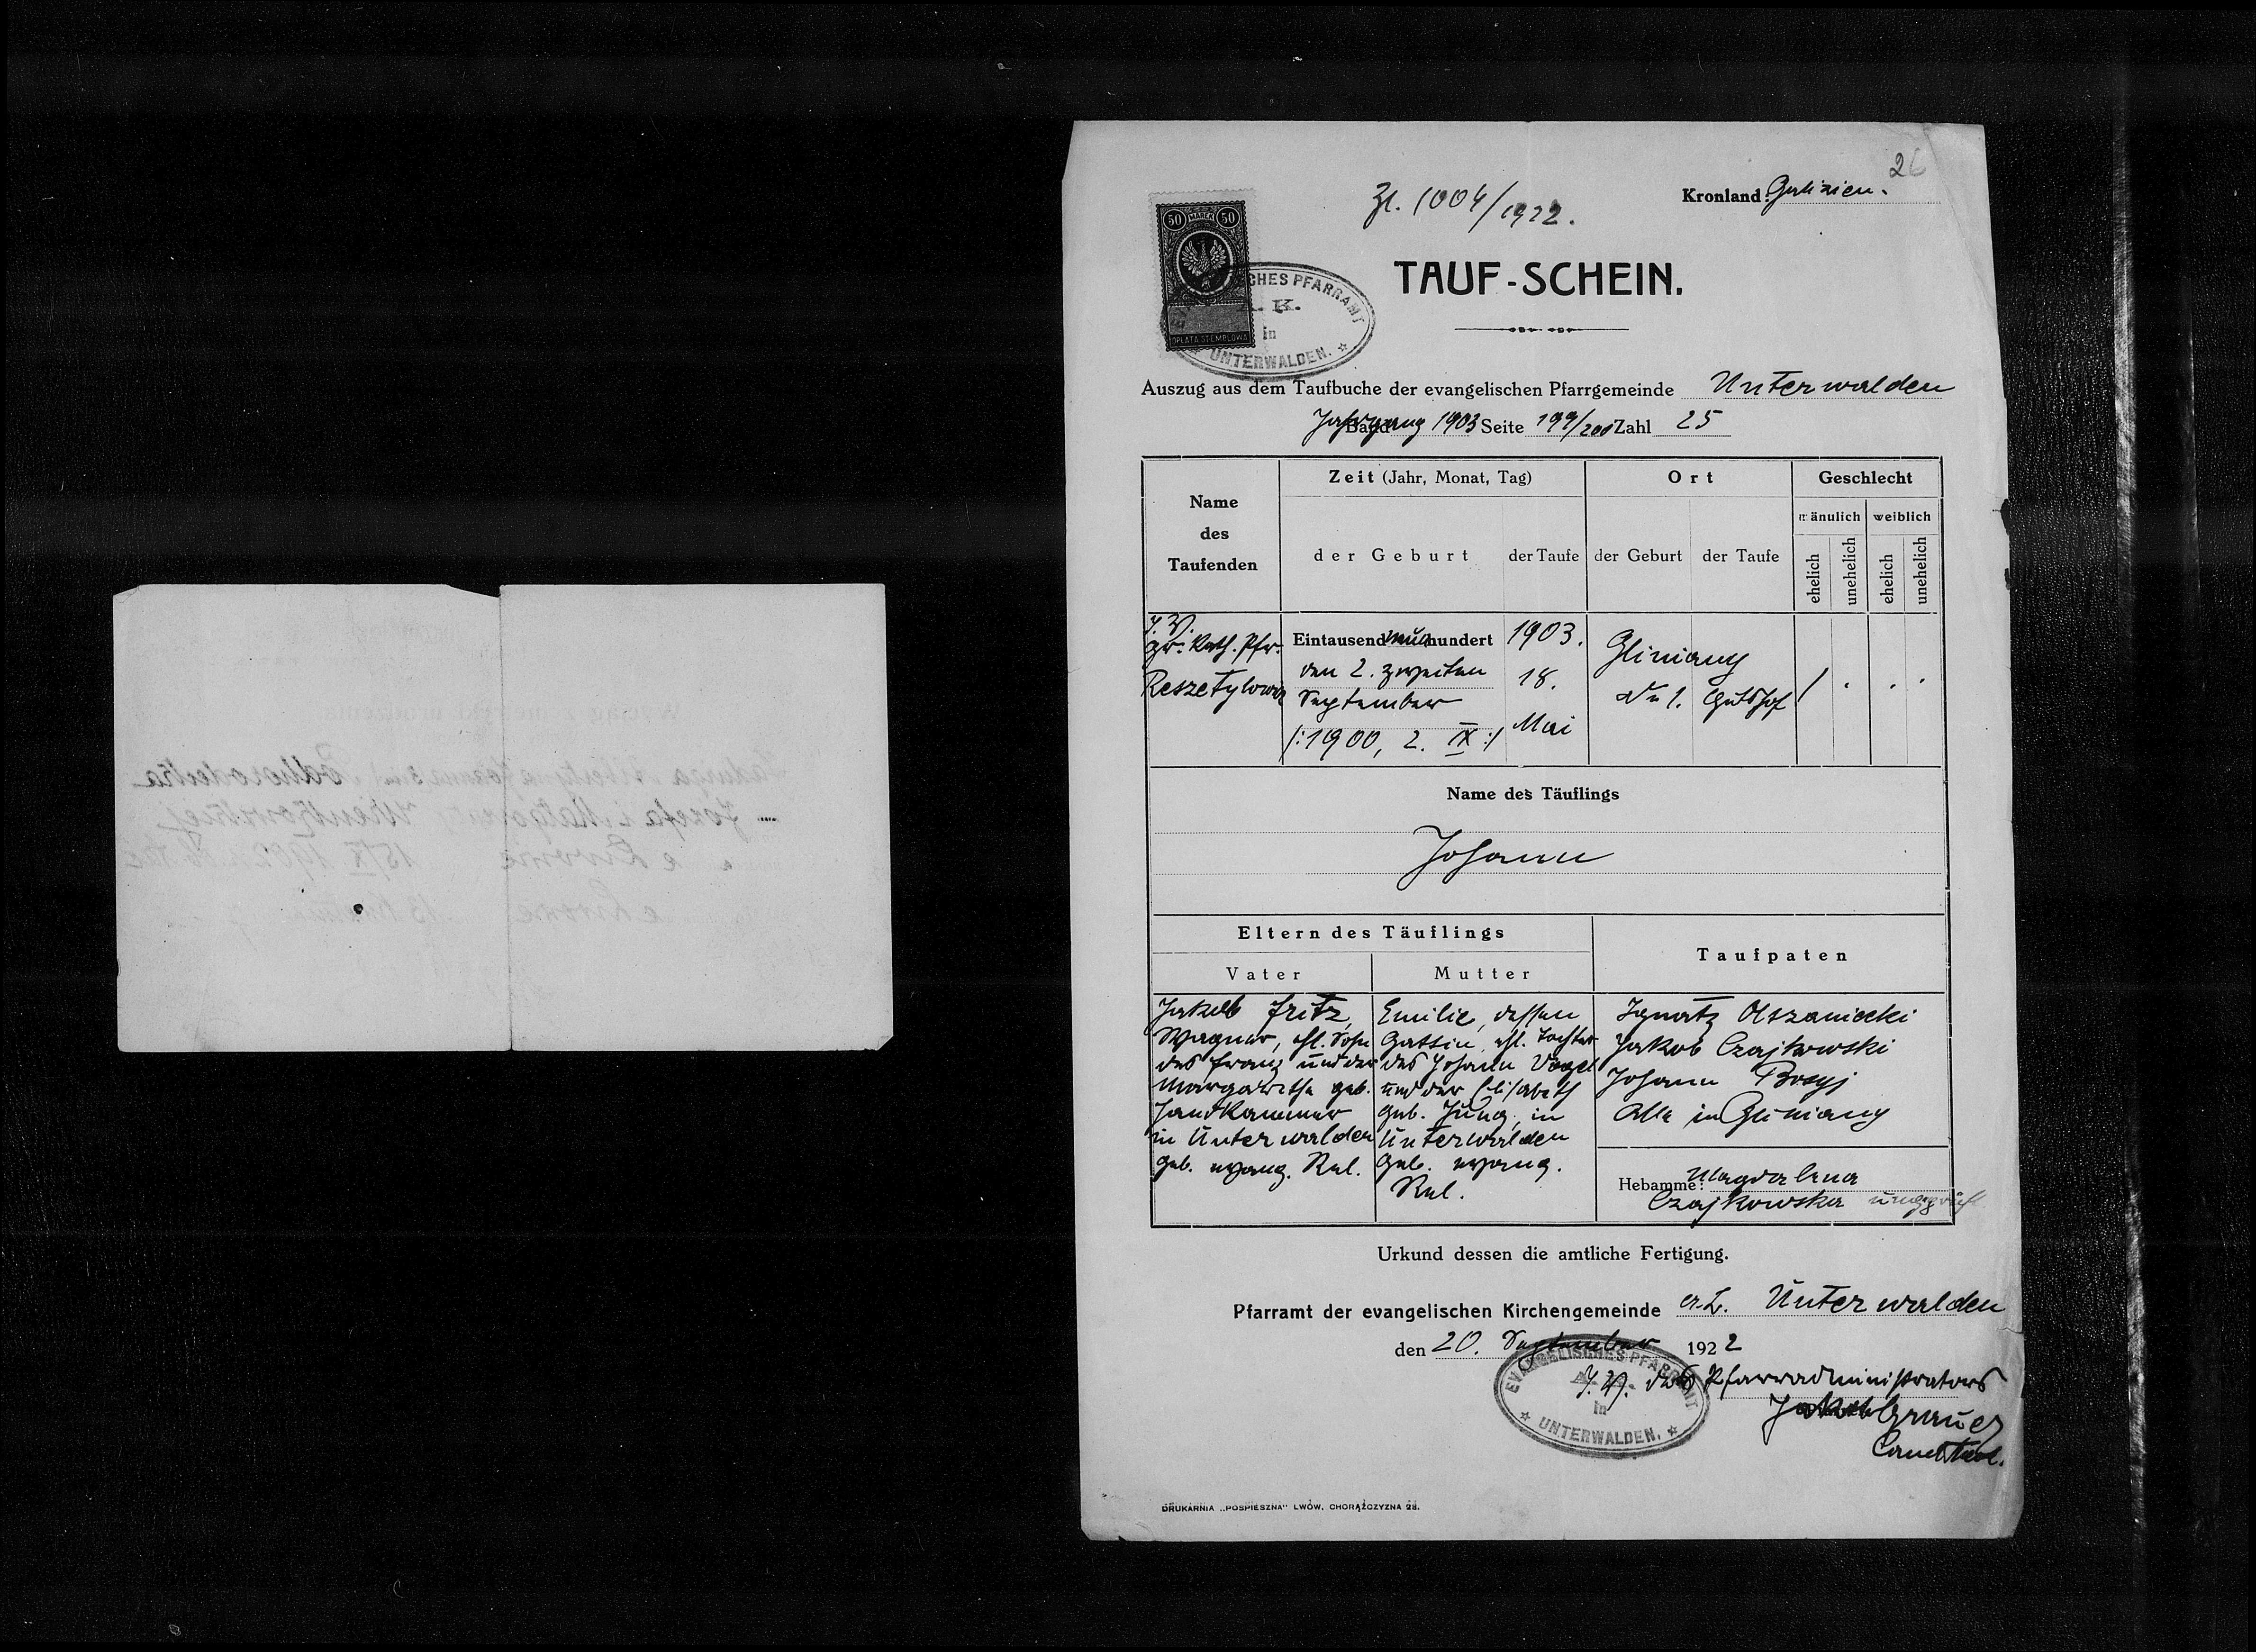 26
Zl. 1004/1922.
Kronland: Galizien.
50 MAREK 50
OPŁATA STEMPLOWA
EVANGELISCHES PFARRAMT
A. K.
in
UNTERWALDEN.
TAUF-SCHEIN.
Auszug aus dem Taufbuche der evangelischen Pfarrgemeinde Unterwalden
Jahrgang 1903 Seite 199/200 Zahl 25
Name des Taufenden
Zeit (Jahr, Monat, Tag)
Ort
Geschlecht
der Geburt
der Taufe
der Geburt
der Taufe
mänulich
weiblich
ehelich
unehelich
ehelich
unehelich
gr. kath. Pfr.
Reszetylowicz
Eintausend neunhundert
den 2. zweiten
September
/:1900, 2. IX:/
1903.
18.
Mai
Gliniany
Nr 1. Gutshof
/ . . .
Name des Täuflings
Johann
Eltern des Täuflings
Taufpaten
Vater
Mutter
Jakob Fritz,
Wagner, ehl. Sohn
des Franz und der
Margarethe geb.
in Unterwalden
geb. evang. Rel.
Emilie, dessen
Gattin, ehl. Tochter
des Johann Vogel
und der Elisabeth
geb. Jung, in
Unterwalden
geb. evang.
Rel.
Ignatz Olszaniecki
Jakob Czajkowski
Johann
Alle in Gliniany
Hebamme: Magdalena
Czajkowska ungeprüft
Urkund dessen die amtliche Fertigung.
Pfarramt der evangelischen Kirchengemeinde Unterwalden
den 20. September 1922
EVANGELISCHES PFARRAMT
A. K.
in
UNTERWALDEN.
I. V. des Pfarradministrators
Jakob Grauer
DRUKARNIA „POSPIESZNA" LWÓW, CHORĄŻCZYZNA 28.